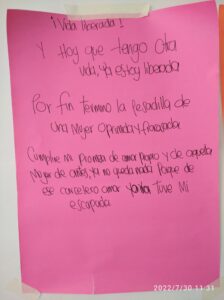 ¡Vida liberada!
Y Hoy que tengo otra
vida, ya estoy liberada
Por fin termino la pesadilla de
una Mujer oprimida y fracasada
Cumpliré mi promesa de amor propio y de aquella
Mujer de antes, ya no queda nada Porque de
ese carcelero amor ya tuve Mi
escapada
2022/7/30 11:31